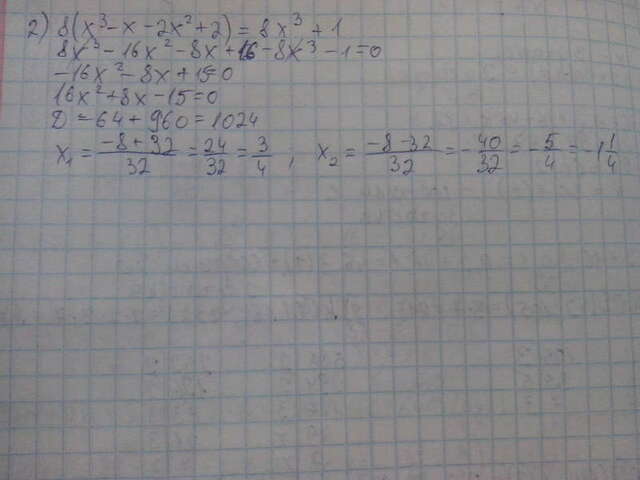 2) 8(x³ - x - 2x² + 2) = 8x³ + 1
8x³ - 16x² - 8x + 16 - 8x³ - 1 = 0
-16x² - 8x + 15 = 0
16x² + 8x - 15 = 0
D = 64 + 960 = 1024
x₁ = (-8 + 32)/32 = 24/32 = 3/4 ; x₂ = (-8 - 32)/32 = -40/32 = -5/4 = -1 1/4